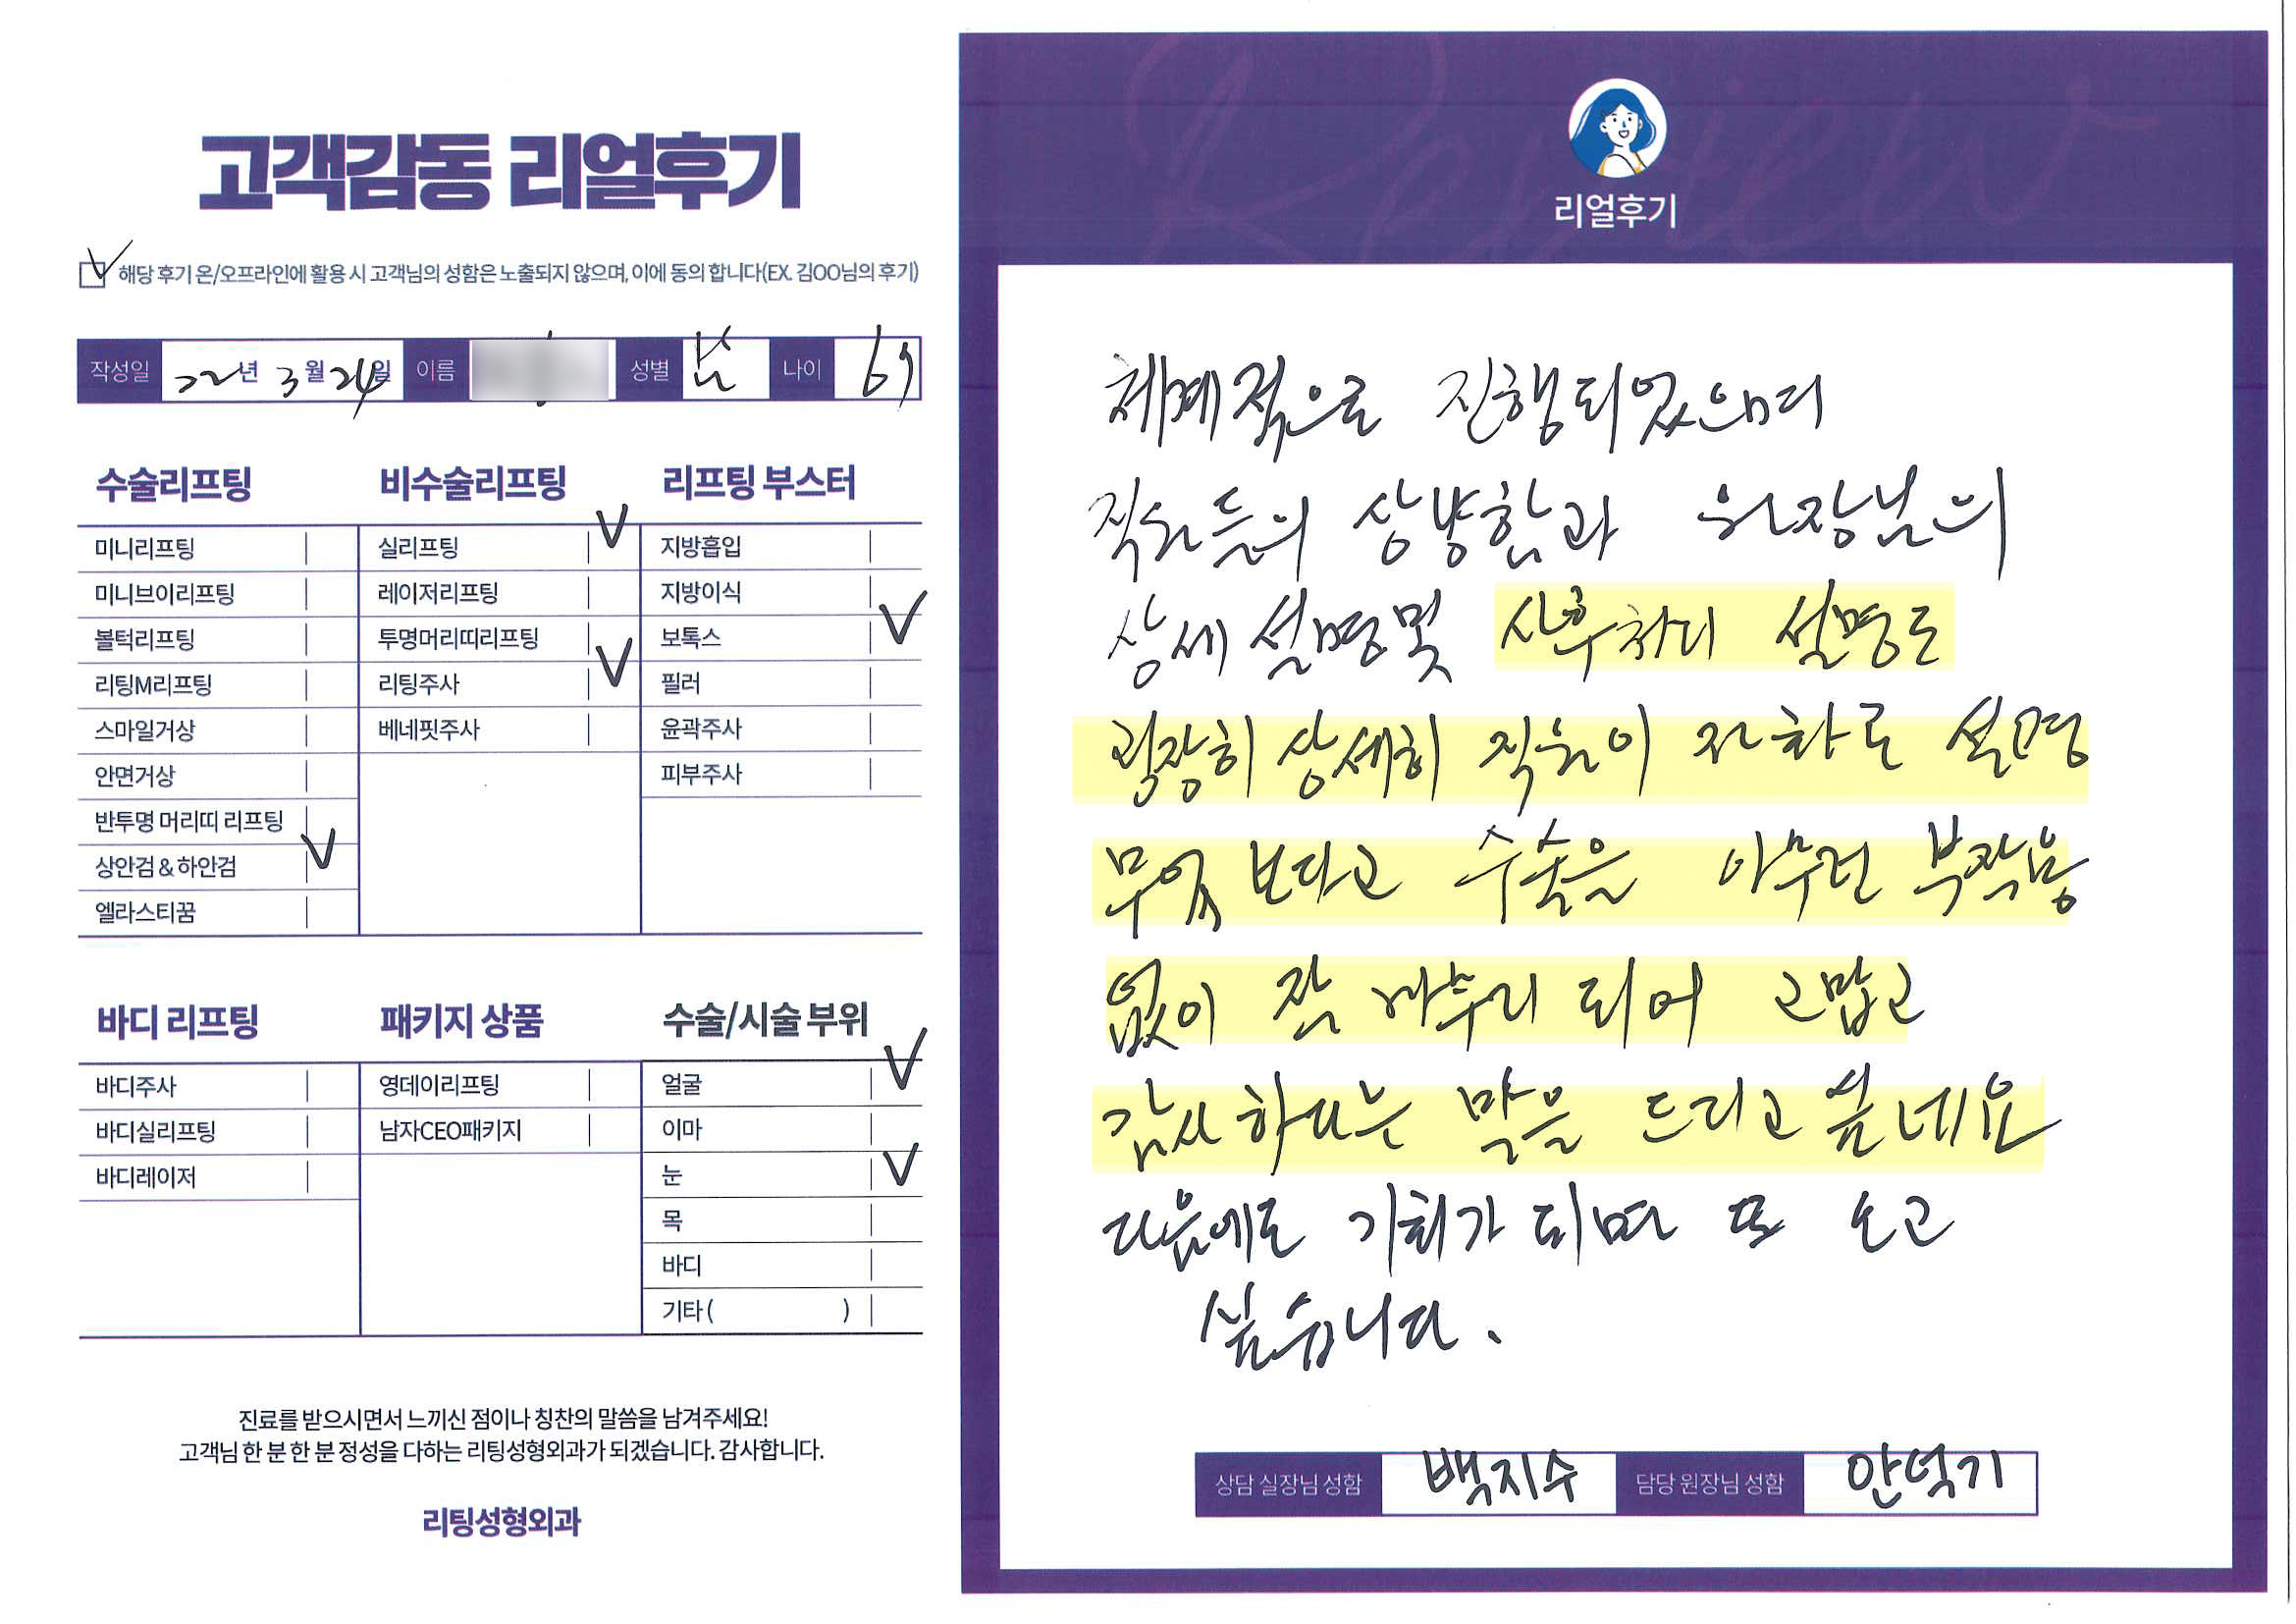 고객감동 리얼후기
해당 후기 온/오프라인에 활용 시 고객님의 성함은 노출되지 않으며, 이에 동의 합니다(EX. 김OO님의 후기)
작성일 22년 3월 24일 이름 성별 남 나이 69
수술리프팅
미니리프팅
미니브이리프팅
볼턱리프팅
리팅M리프팅
스마일거상
안면거상
반투명 머리띠 리프팅
상안검 & 하안검
엘라스티꿈
비수술리프팅
실리프팅
레이저리프팅
투명머리띠리프팅
리팅주사
베네핏주사
리프팅 부스터
지방흡입
지방이식
보톡스
필러
윤곽주사
피부주사
바디 리프팅
바디주사
바디실리프팅
바디레이저
패키지 상품
영데이리프팅
남자CEO패키지
수술/시술 부위
얼굴
이마
눈
목
바디
기타 ( )
진료를 받으시면서 느끼신 점이나 칭찬의 말씀을 남겨주세요!
고객님 한 분 한 분 정성을 다하는 리팅성형외과가 되겠습니다. 감사합니다.
리팅성형외과
Review
리얼후기
체계적으로 진행되었으며
직원들의 상냥함과 원장님의
상세 설명및 사후처리 설명도
굉장히 상세히 직원이 전화로 설명
무엇 보다고 수술을 아무런 부작용
없이 잘 마무리 되어 고맙고
감사하다는 말을 드리고 싶네요
다음에도 기회가 되면 또 오고
싶습니다.
상담 실장님 성함 백지수 담당 원장님 성함 안덕기